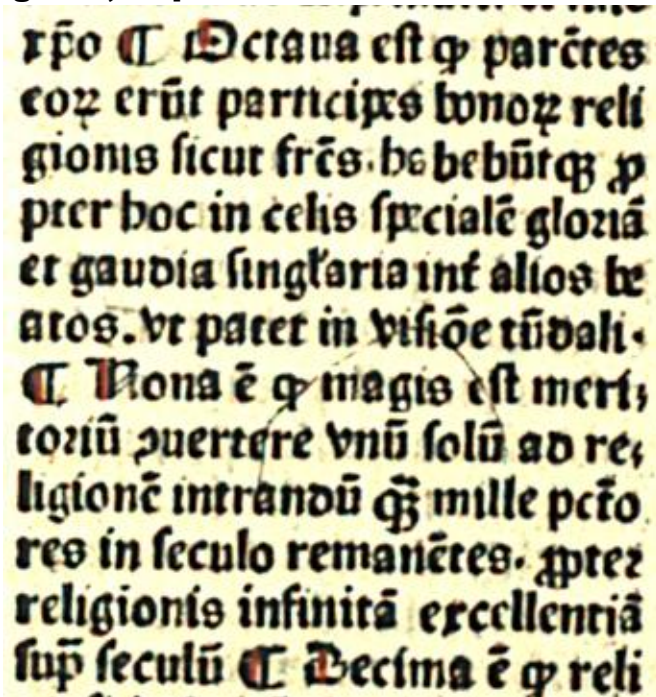 xp̄o ¶ Octaua est ꝙ parētes
eoꝝ erūt participes bonoꝝ reli
gionis sicut fr̄es. habebūtqꝫ ꝓ
pter hoc in celis specialē gloriā
et gaudia singl'aria int̄ alios be
atos. vt patet in visiōe tūdali.
¶ Nona ē ꝙ magis est meri⸗
toriū ꝯuertere vnū solū ad re⸗
ligionē intrandū qꝫ̄ mille pctō
res in seculo remanētes. ꝓpter
religionis infinitā excellentiā
sup̄ seculū ¶ Decima ē ꝙ reli